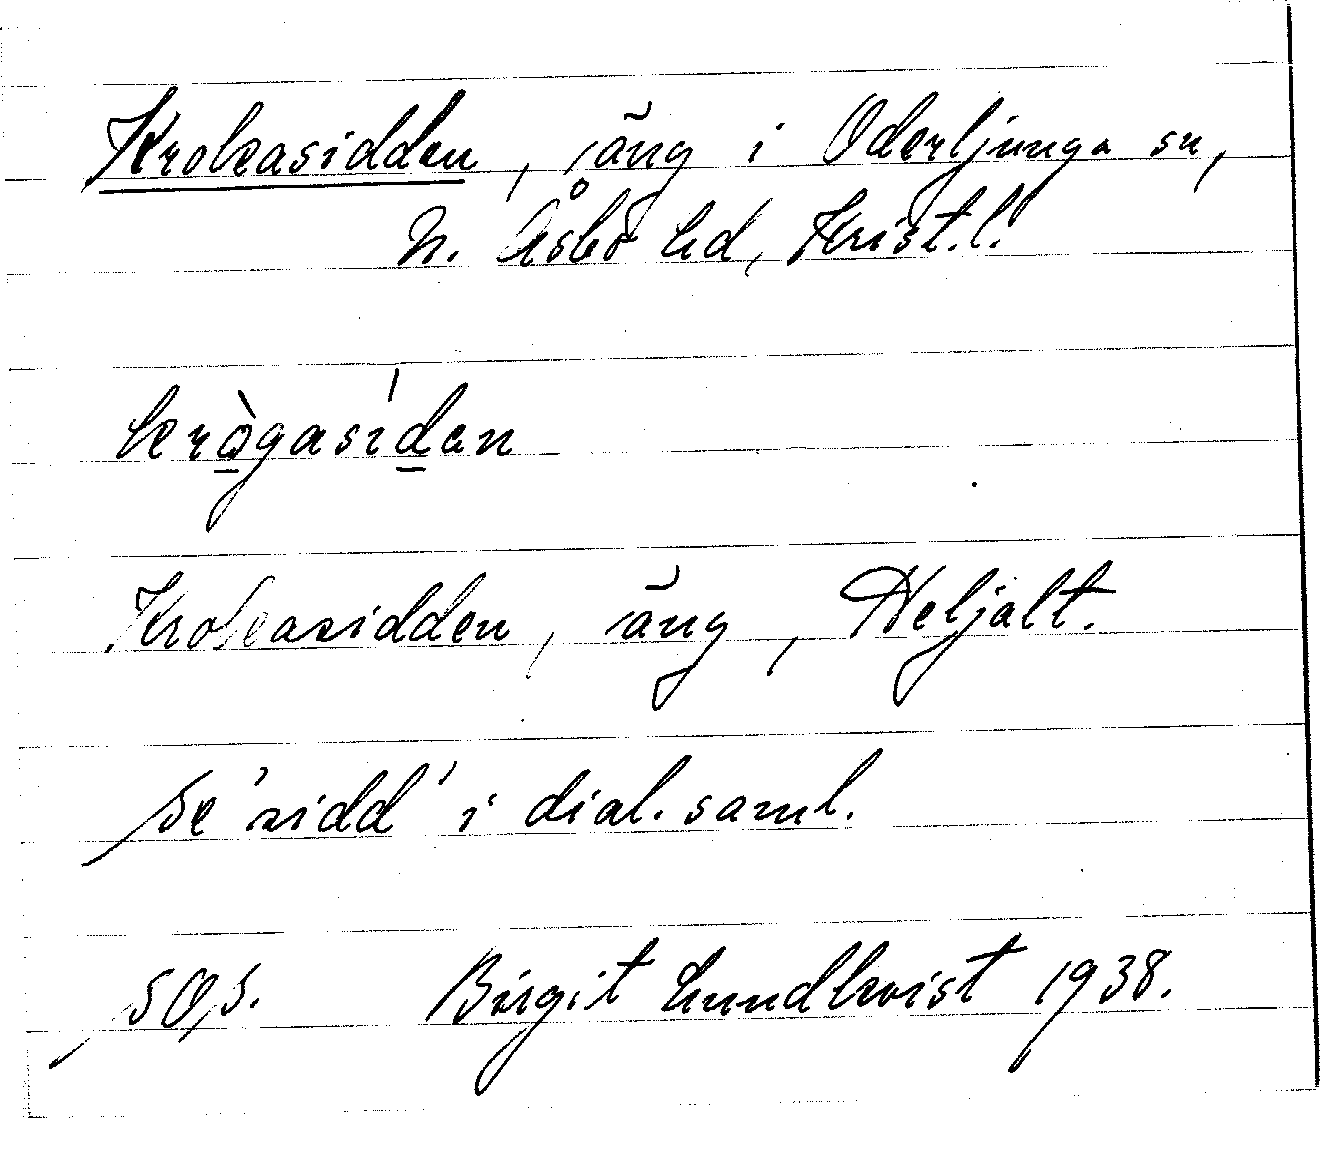 Krokasidden, äng i Oderljunga sn,
N. Åsbo hd, Krist.l.
krògasíden
Krokasidden, äng, Heljalt.
Se 'sidd' i dial. saml.
SOS. Birgit Lundkvist 1938.